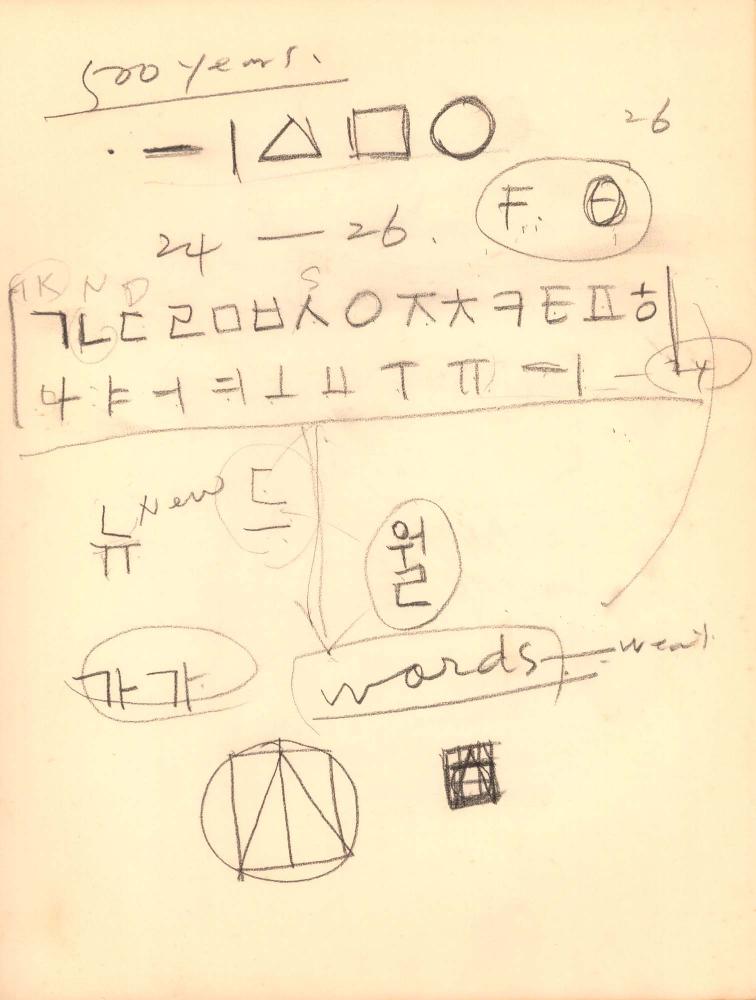 500 years.
· ㅡ ㅣ △ □ ○
26
24 — 26.
F. θ
K N D S
ㄱ ㄴ ㄷ ㄹ ㅁ ㅂ ㅅ ㅇ ㅈ ㅊ ㅋ ㅌ ㅍ ㅎ
ㅏ ㅑ ㅓ ㅕ ㅗ ㅛ ㅜ ㅠ ㅡ ㅣ
뉴 New 드
월
가가
words